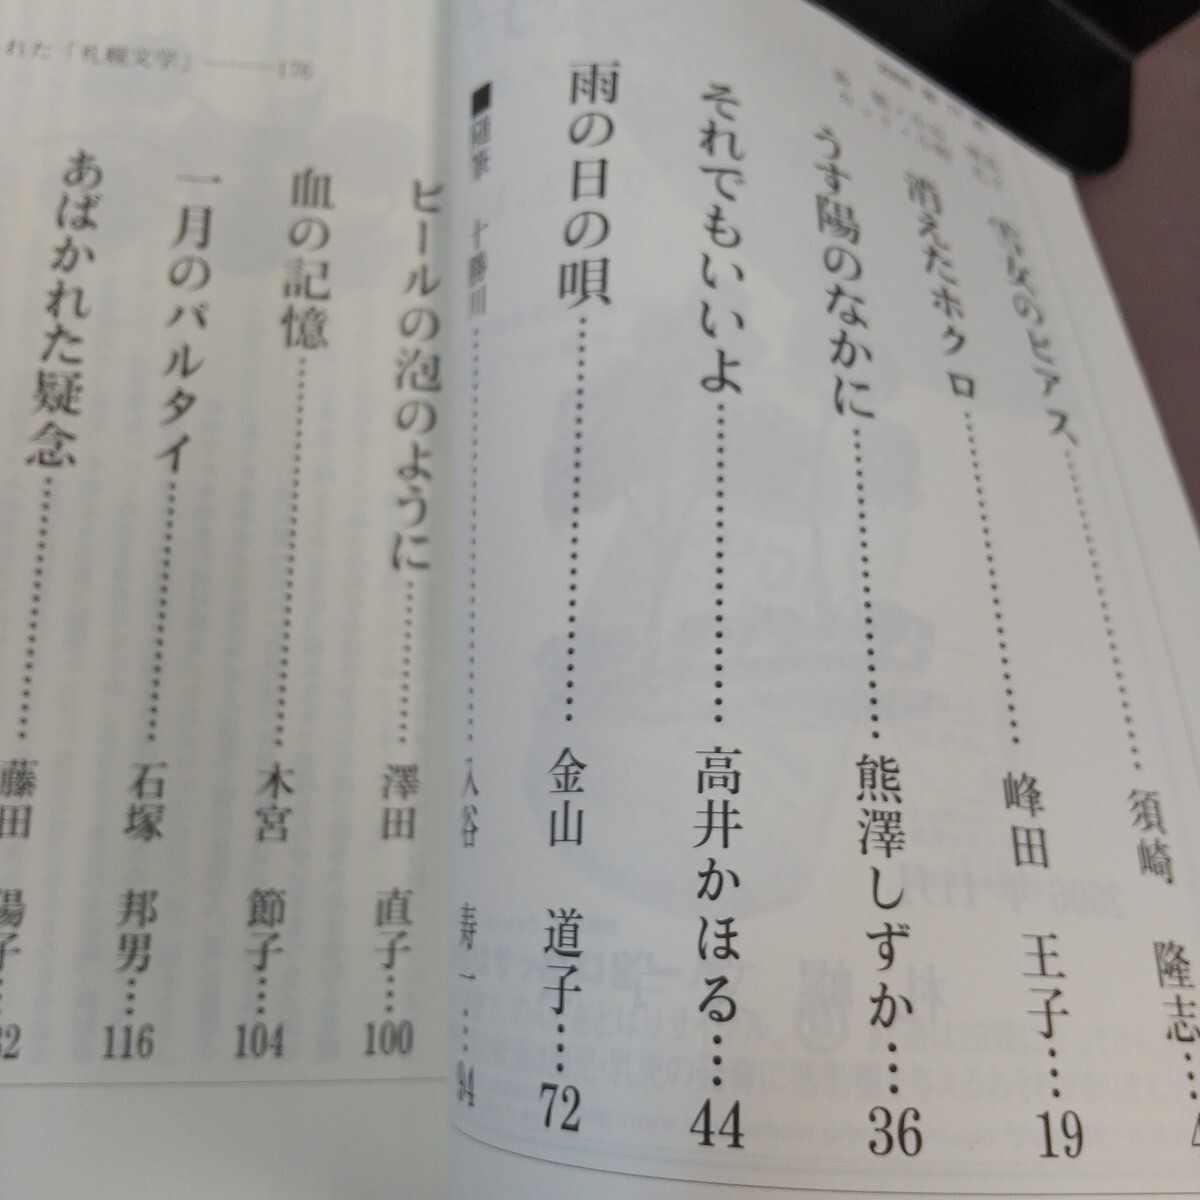 雪女のピアス…………須崎 隆志…4
消えたホクロ…………峰田 王子…19
うす陽のなかに…………熊澤しずか…36
それでもいいよ…………高井かほる…44
雨の日の唄…………金山 道子…72
■随筆 十勝川…………入谷 寿一…94
ビールの泡のように…………澤田 直子…100
血の記憶…………木宮 節子…104
一月のバルタイ…………石塚 邦男…116
あばかれた疑念…………藤田 陽子…32
れた「札幌文学」………176